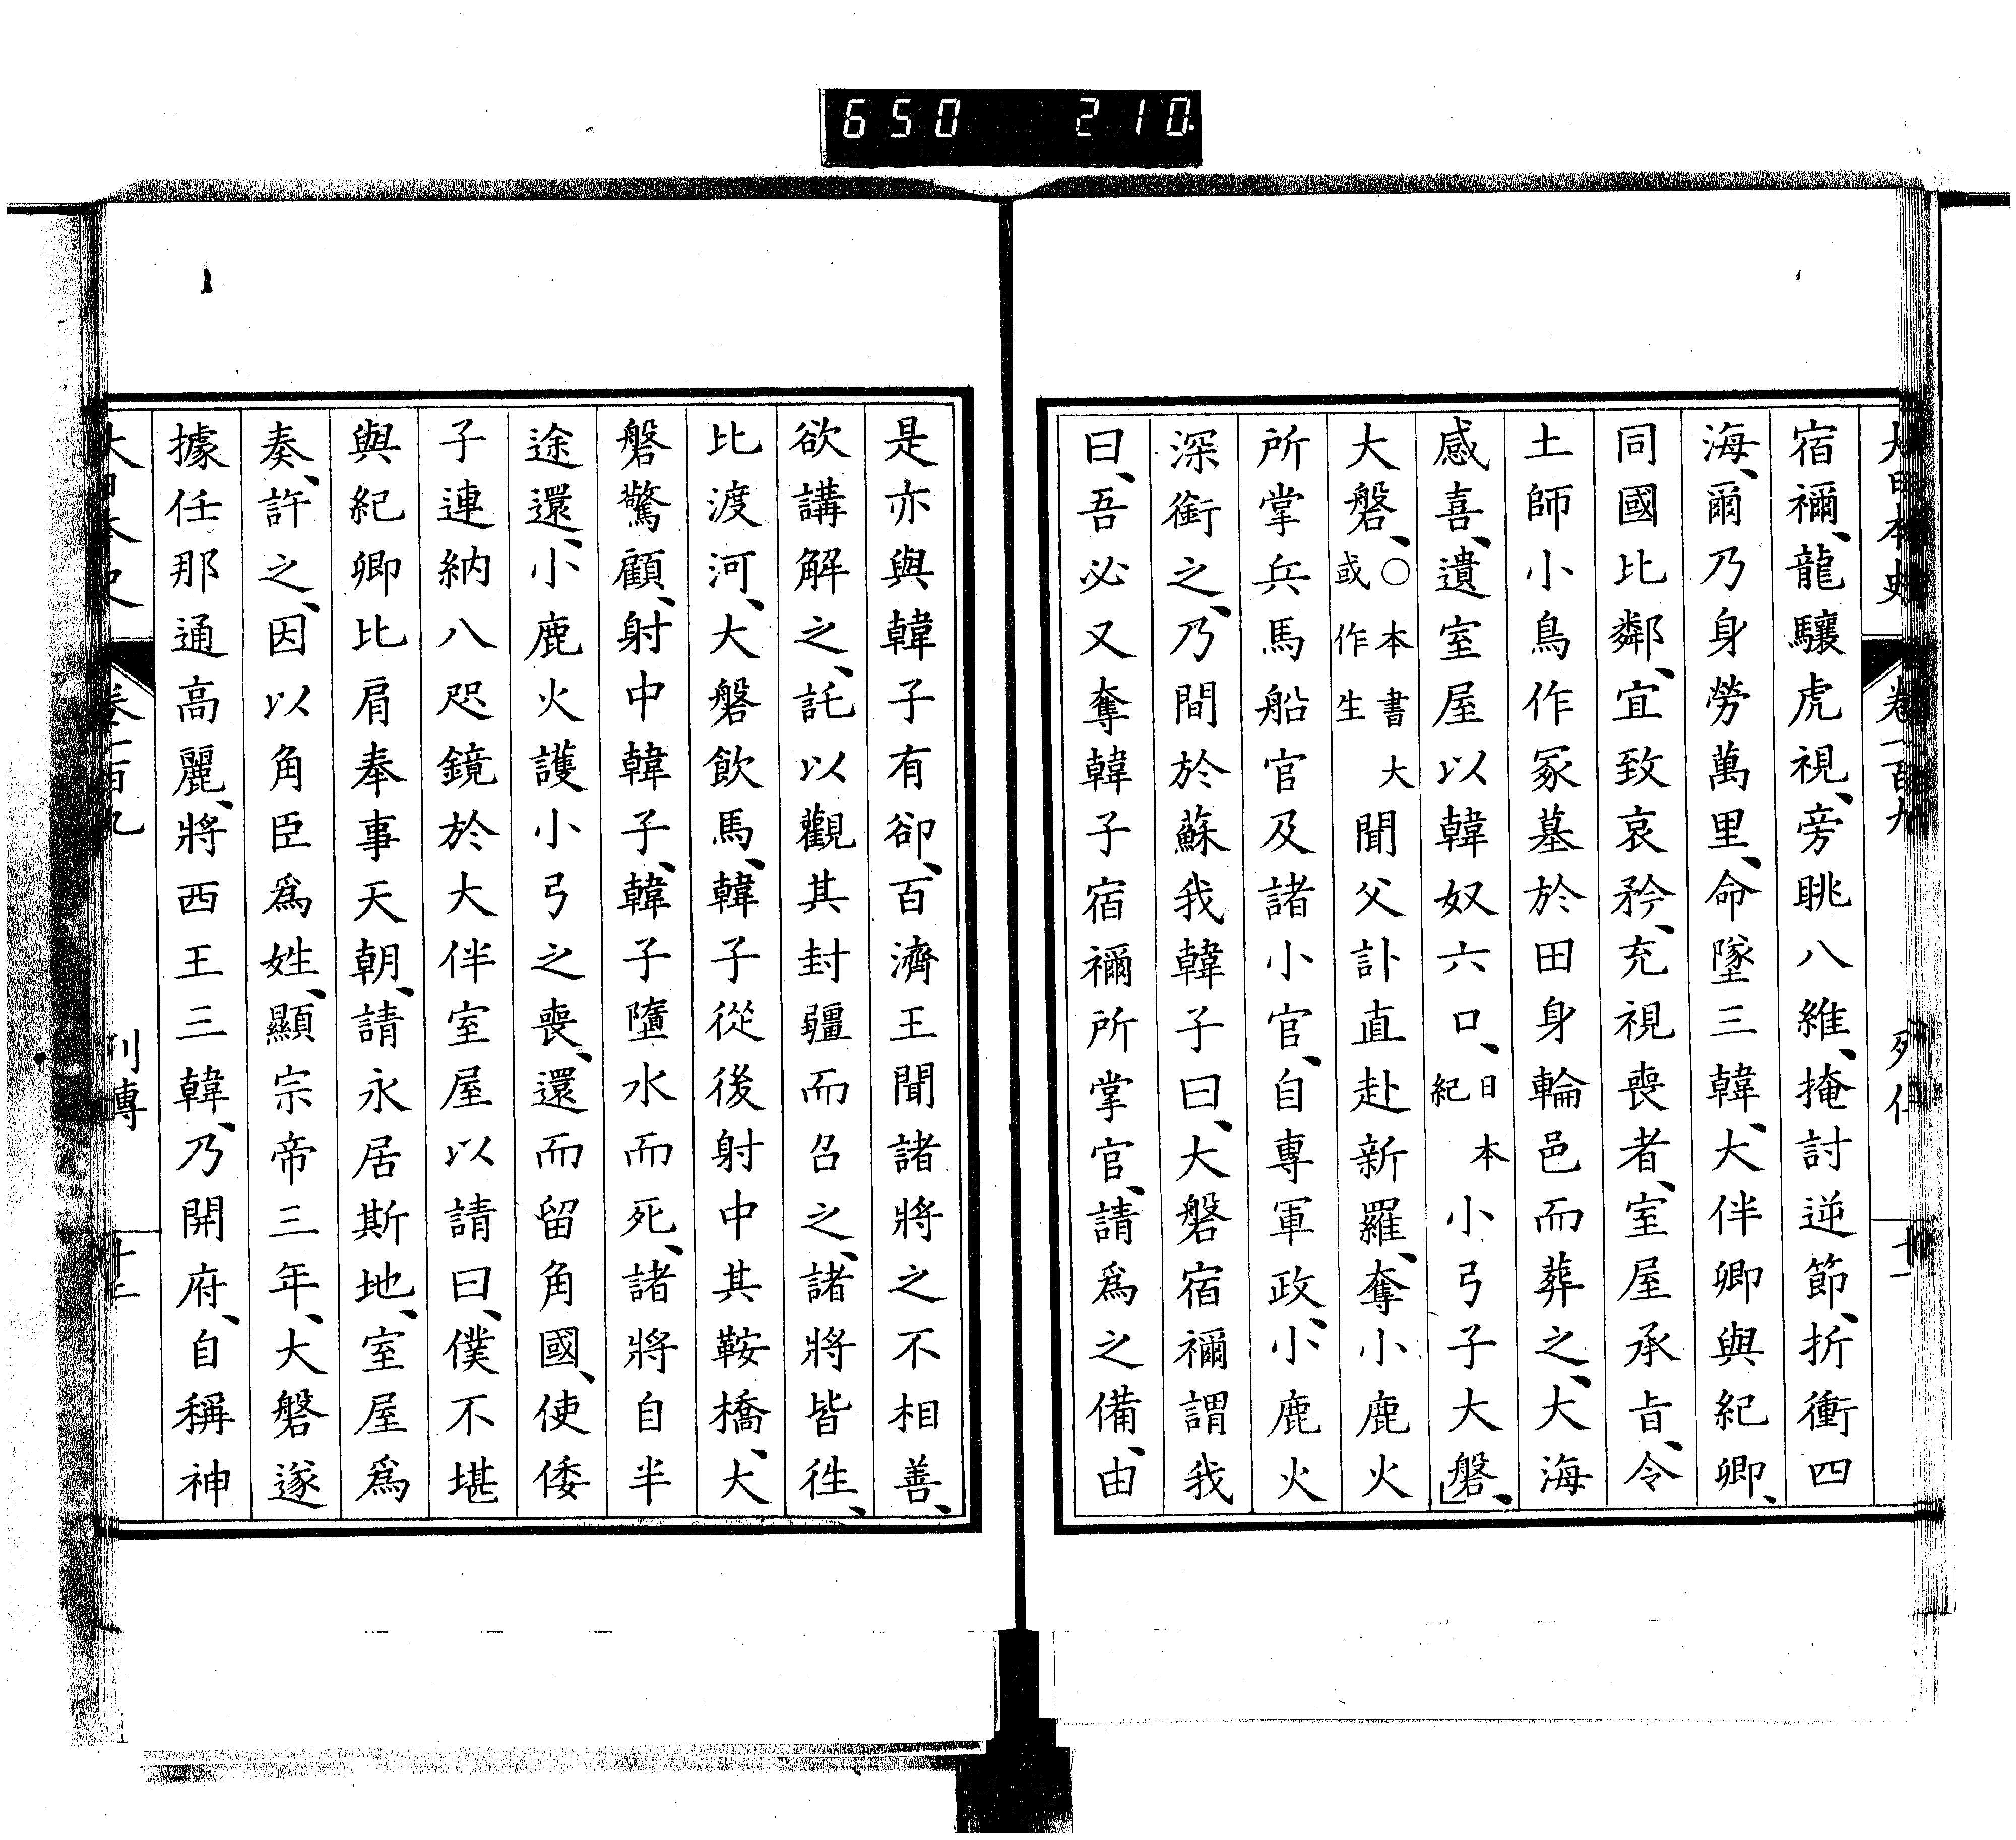 650 210.
大日本史 卷一百九 列傳 十一
宿禰、龍驤虎視、旁眺八維、掩討逆節、折衝四
海、爾乃身勞萬里、命墜三韓、大伴卿與紀卿、
同國比鄰、宜致哀矜、充視喪者、室屋承旨、令
土師小鳥作冢墓於田身輪邑而葬之、大海
感喜、遺室屋以韓奴六口、日本紀小弓子大磐、
大磐、○本書大或作生聞父訃直赴新羅、奪小鹿火
所掌兵馬船官及諸小官、自專軍政、小鹿火
深銜之、乃間於蘇我韓子曰、大磐宿禰謂我
曰、吾必又奪韓子宿禰所掌官、請爲之備、由
是亦與韓子有卻、百濟王聞諸將之不相善、
欲講解之、託以觀其封疆而召之、諸將皆徃、
比渡河、大磐飮馬、韓子從後射中其鞍橋、大
磐驚顧、射中韓子、韓子墮水而死、諸將自半
途還、小鹿火護小弓之喪、還而留角國、使倭
子連納八咫鏡於大伴室屋以請曰、僕不堪
與紀卿比肩奉事天朝、請永居斯地、室屋爲
奏、許之、因以角臣爲姓、顯宗帝三年、大磐遂
據任那通高麗、將西王三韓、乃開府、自稱神
大日本史 卷一百九 列傳 十二